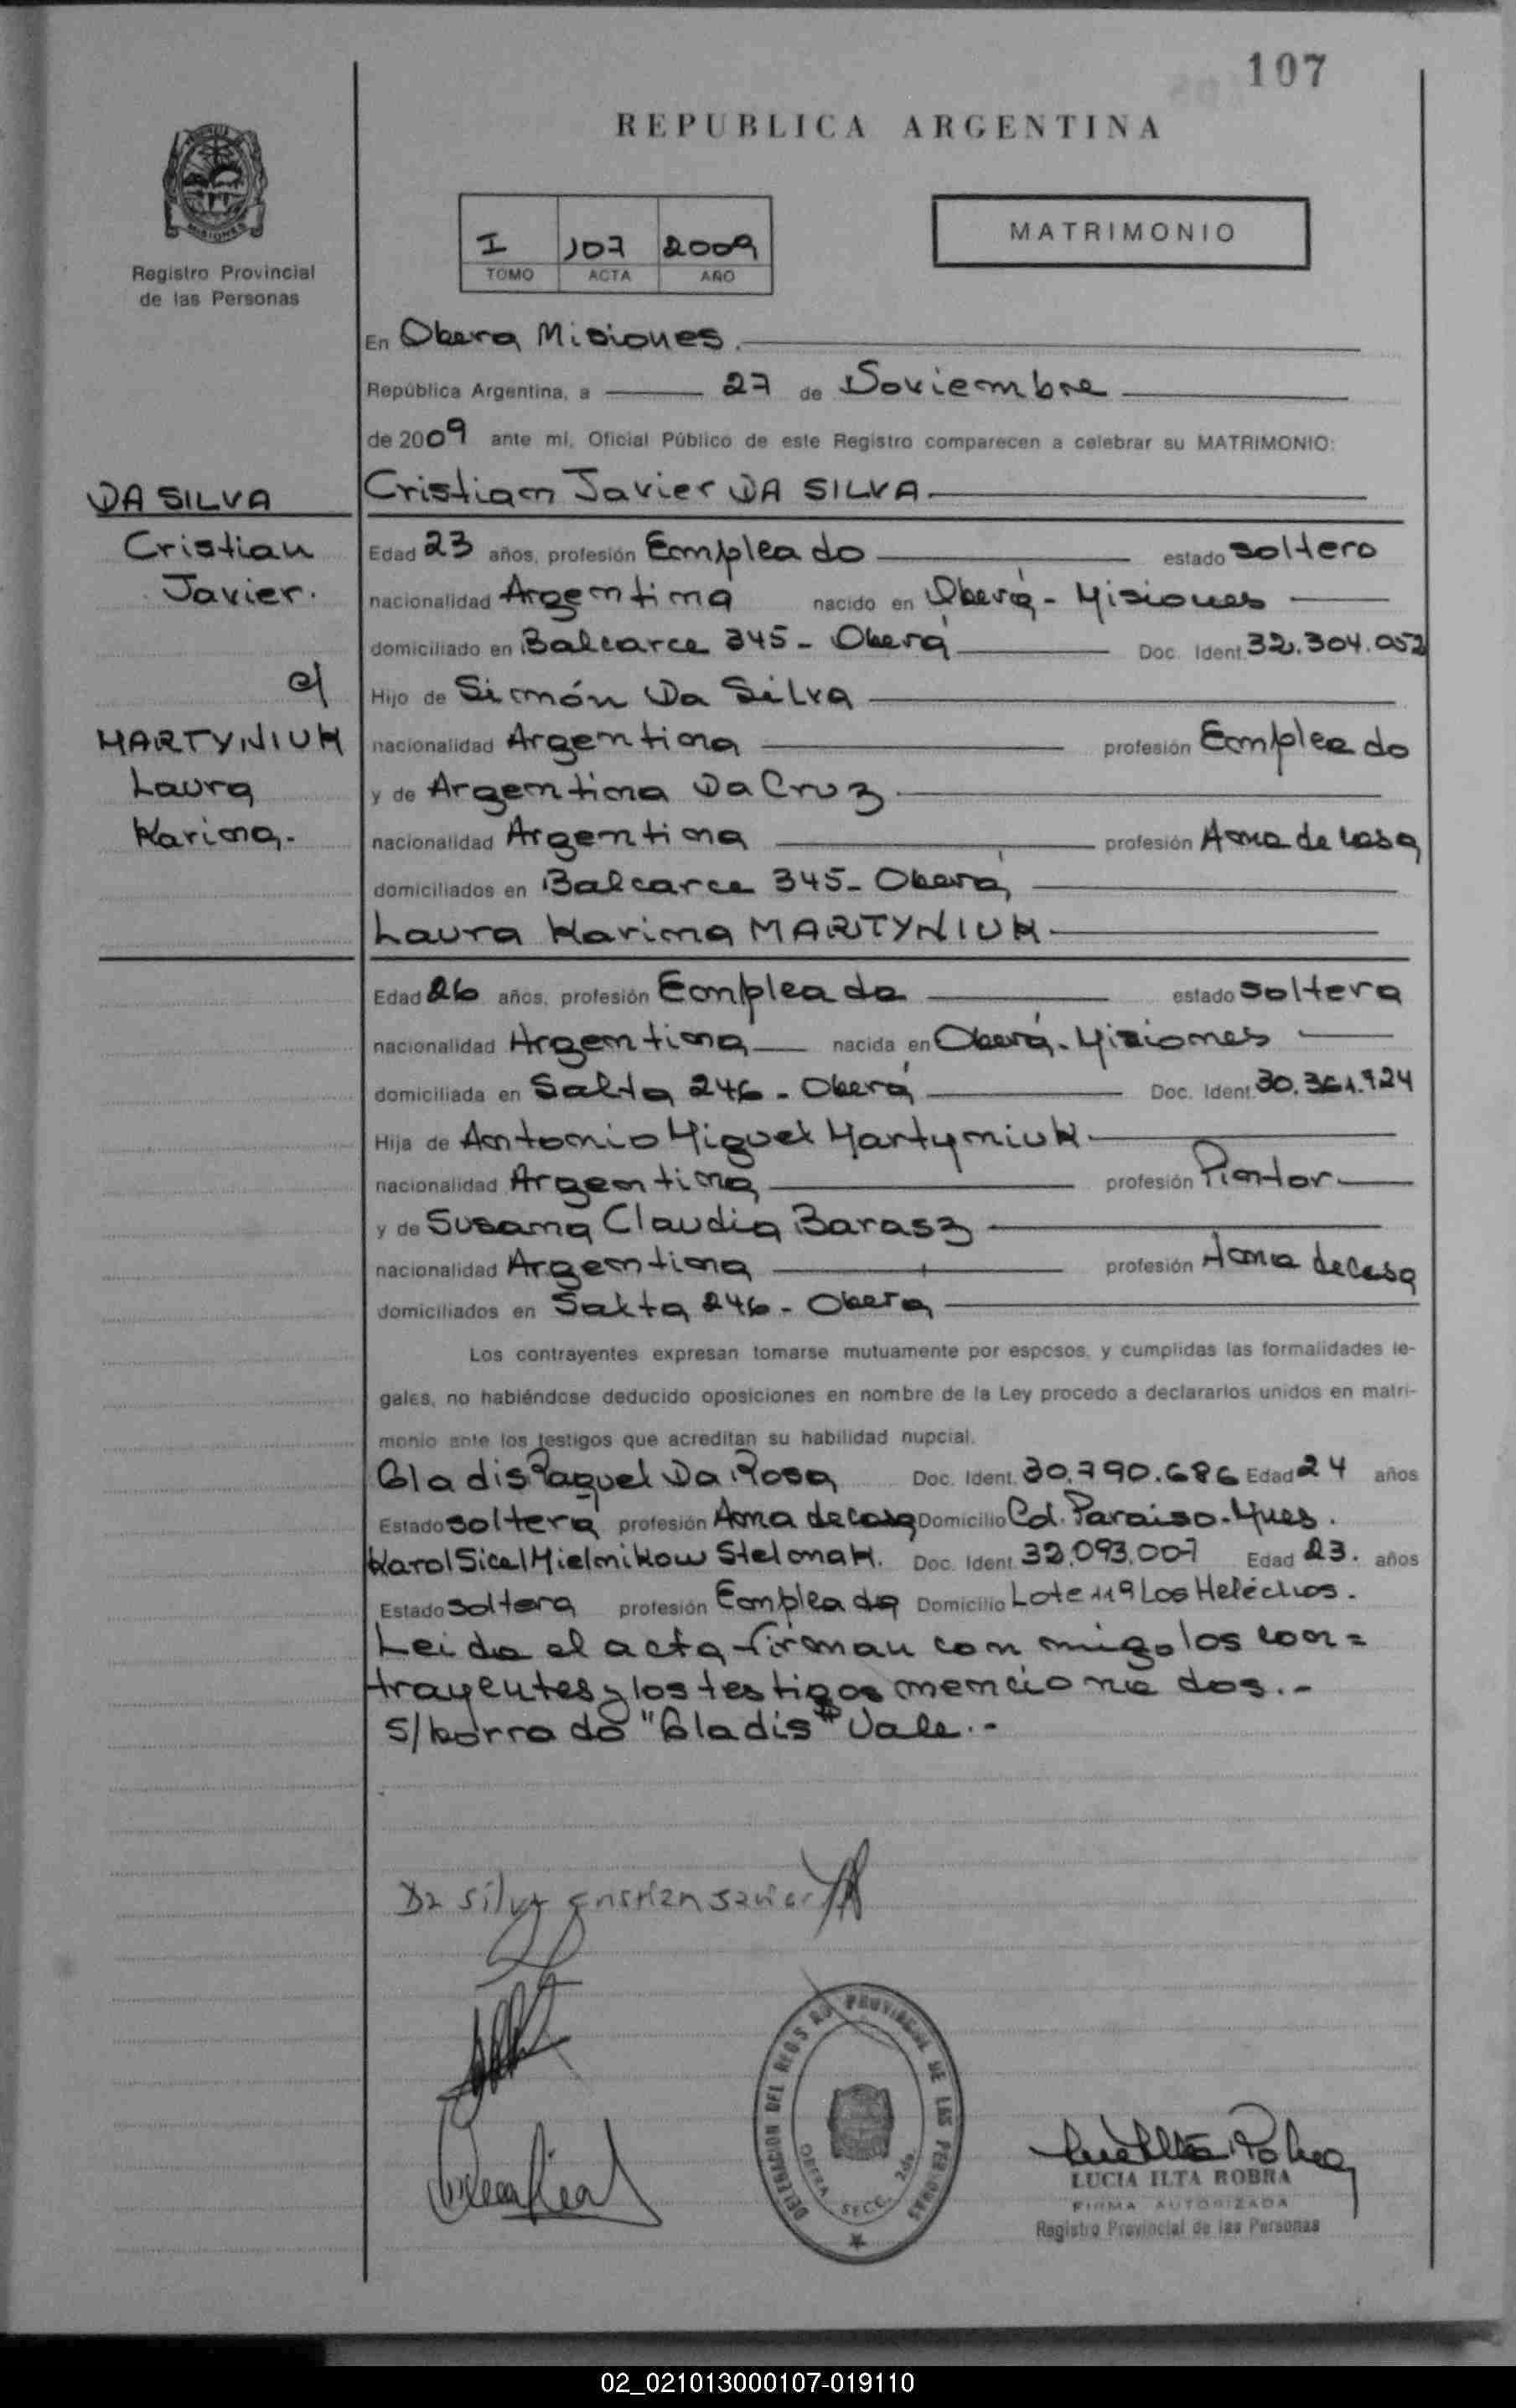 107
REPUBLICA ARGENTINA
MISIONES
Registro Provincial
de las Personas
I 107 2009
TOMO ACTA AÑO
MATRIMONIO
En Obera Misiones.
República Argentina, a 27 de Noviembre
de 2009 ante mí, Oficial Público de este Registro comparecen a celebrar su MATRIMONIO:
DA SILVA
Cristian
Javier.
c/
MARTYNIUK
Laura
Karina.
Cristian Javier DA SILVA
Edad 23 años, profesión Empleado estado soltero
nacionalidad Argentina nacido en Oberá - Misiones
domiciliado en Balcarce 345 - Oberá Doc. Ident. 32.304.052
Hijo de Simón Da Silva
nacionalidad Argentina profesión Empleado
y de Argentina Da Cruz
nacionalidad Argentina profesión Ama de casa
domiciliados en Balcarce 345 - Oberá
Laura Karina MARTYNIUK
Edad 26 años, profesión Empleada estado soltera
nacionalidad Argentina nacida en Oberá - Misiones
domiciliada en Salta 246 - Oberá Doc. Ident. 30.361.924
Hija de Antonio Miguel Martyniuk
nacionalidad Argentina profesión Pintor
y de Susana Claudia Barasz
nacionalidad Argentina profesión Ama de casa
domiciliados en Salta 246 - Obera
Los contrayentes expresan tomarse mutuamente por esposos, y cumplidas las formalidades le-
gales, no habiéndose deducido oposiciones en nombre de la Ley procedo a declararlos unidos en matri-
monio ante los testigos que acreditan su habilidad nupcial.
Gladis Raquel Da Rosa Doc. Ident. 30.790.686 Edad 24 años
Estado soltera profesión Ama de casa Domicilio Cd. Paraiso - Mnes.
Karol Sicel Mielnikow Stelonak. Doc. Ident. 32.093.007 Edad 23. años
Estado soltera profesión Empleada Domicilio Lote 119 Los Helechos.
Leida el acta firman con migo los con=
trayentes y los testigos mencionados.-
S/borrado "Gladis" Vale.-
Da Silva Cristian Javier
DELEGACION DEL REGISTRO PROVINCIAL DE LAS PERSONAS
OBERA SECC. 2da.
LUCIA ILTA ROBRA
FIRMA AUTORIZADA
Registro Provincial de las Personas
02_021013000107-019110